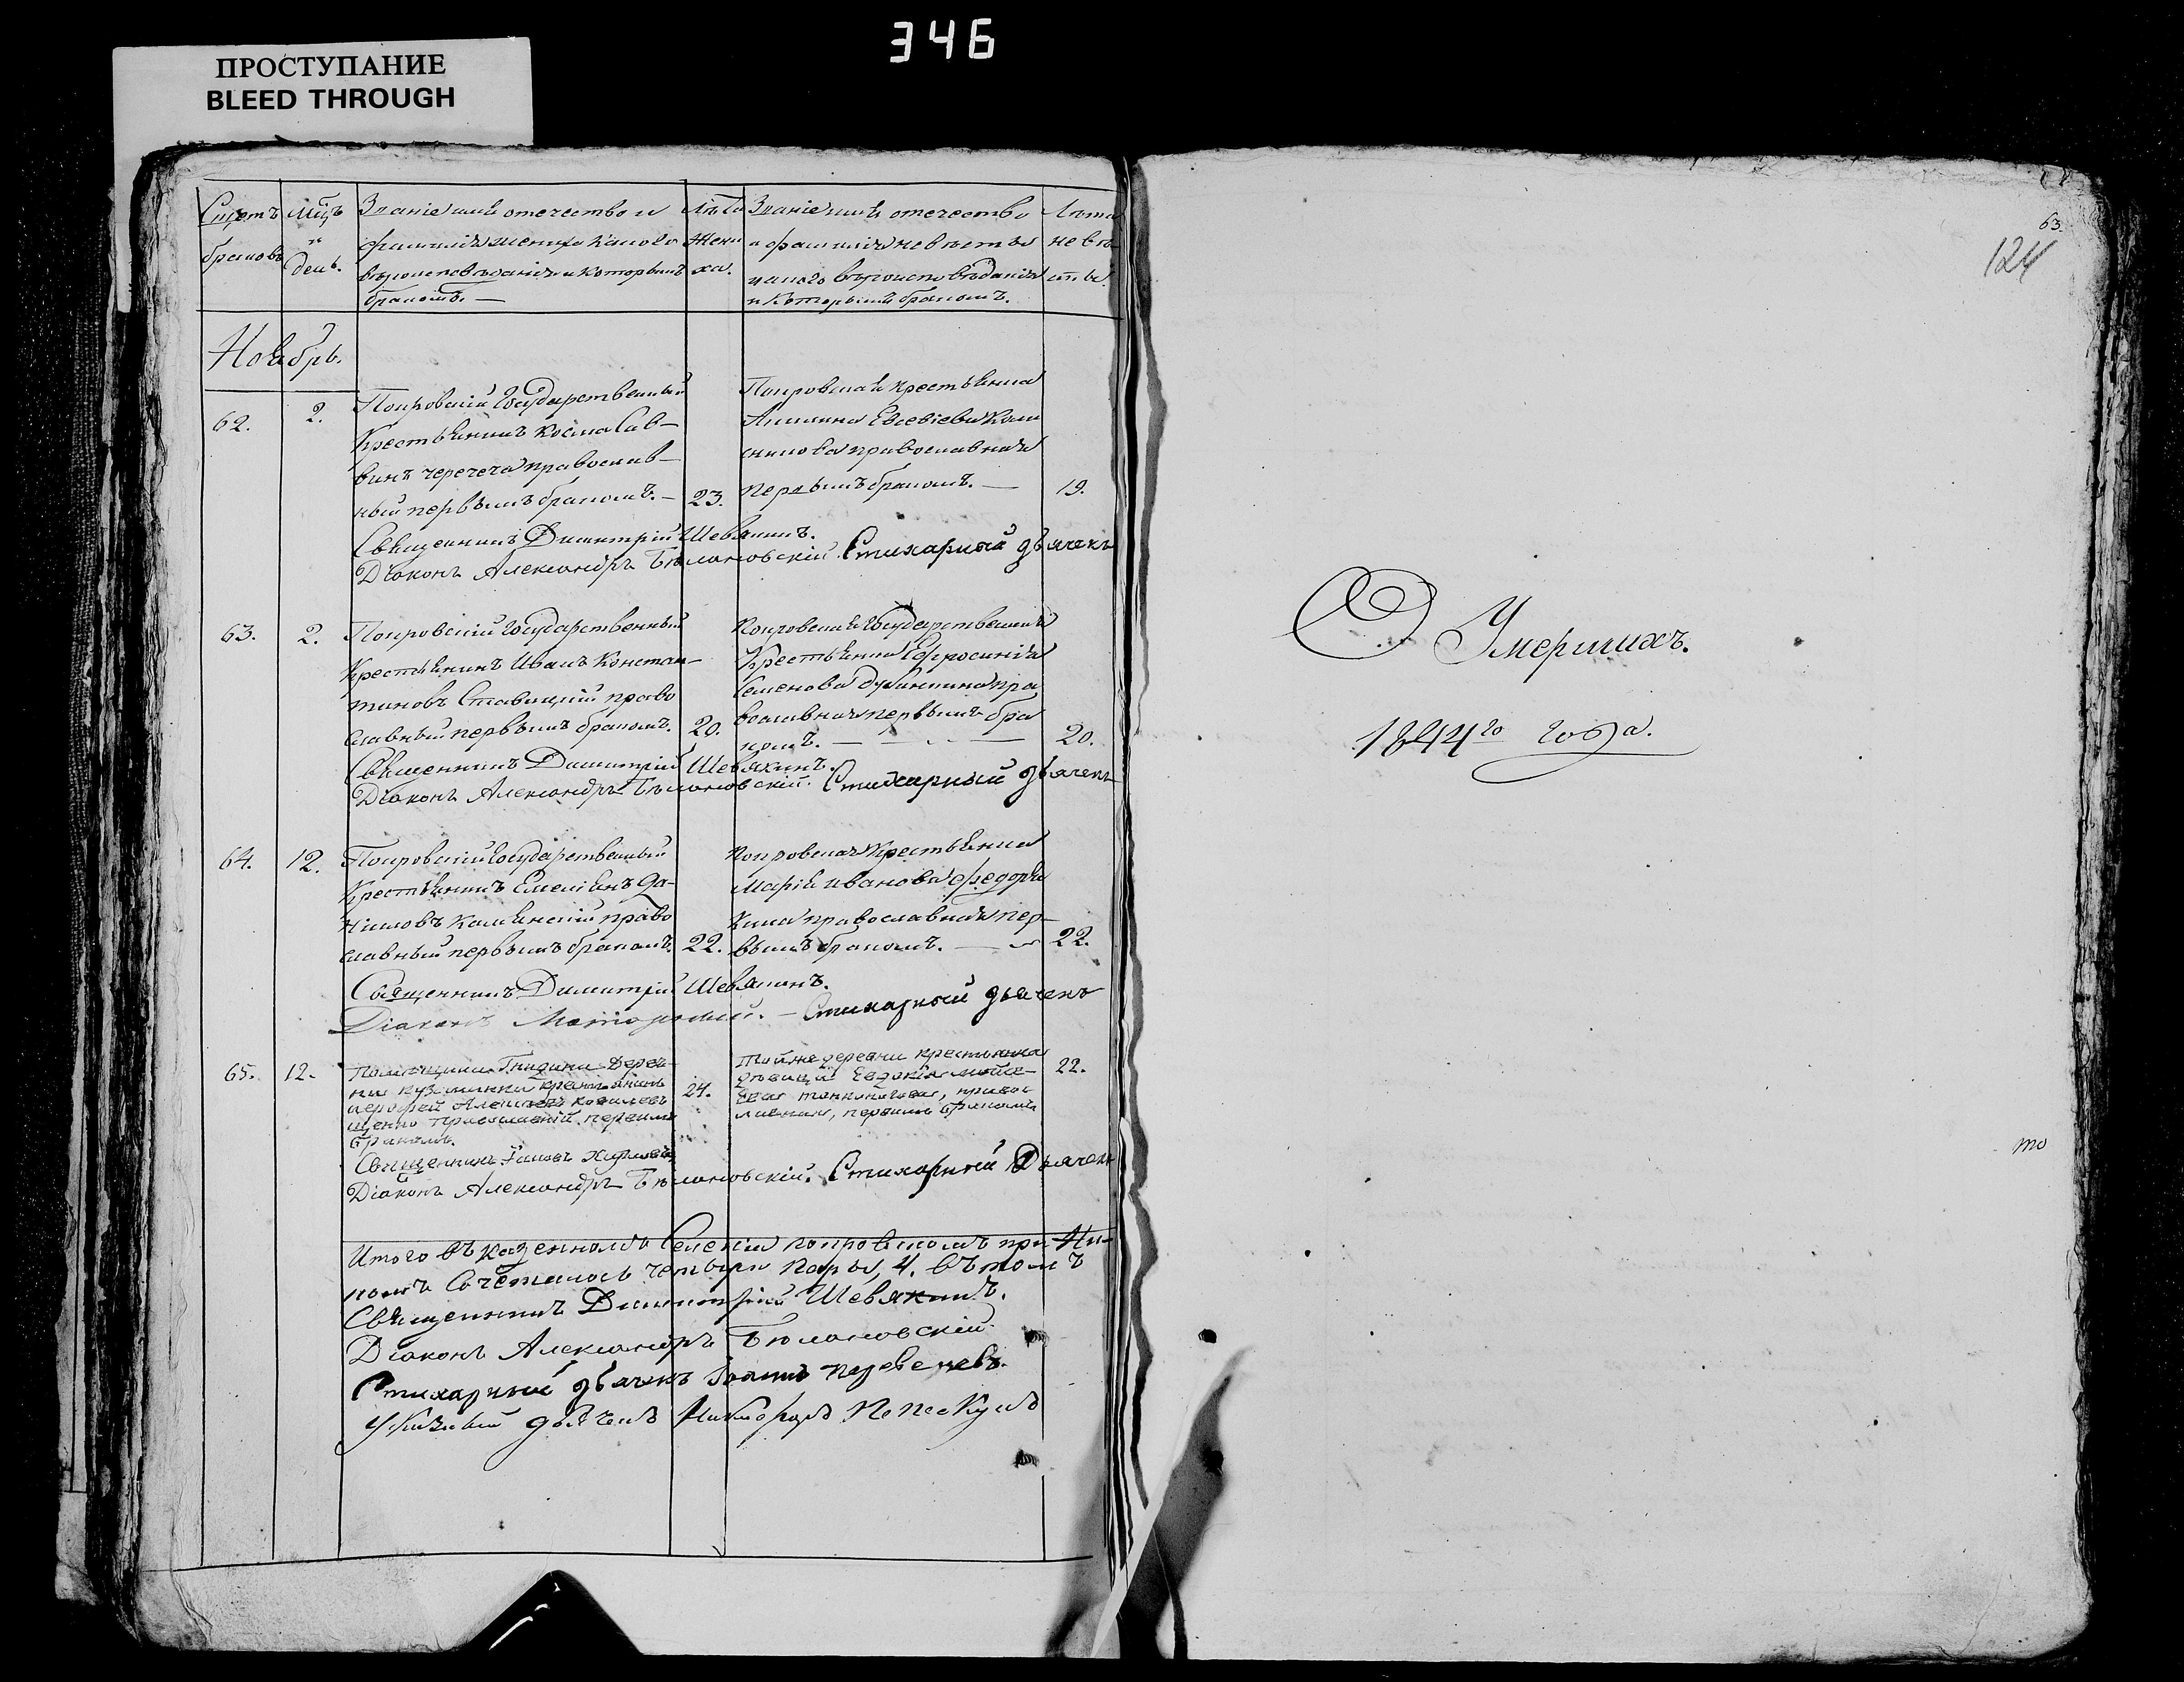 346
ПРОСТУПАНИЕ
BLEED THROUGH
Счетъ браковъ
Мцъ и день.
Званіе имя отечество и
фамилія жениха какого
вѣроисповѣданія и которымъ
бракомъ. —
Лѣта
жени
ха.
Званіе имя отечество
и фамилія невѣсты
какого вѣроисповѣданія
и которымъ бракомъ.
Лѣта
невѣ
сты.
Ноябрь.
62. 2.
Покровскій Государственный
Крестьянинъ Косма Сав-
винъ черечеча православ-
ный первымъ бракомъ. — 23.
Покровская крестьянка
Акилина Евсевіева Кали
никова православная
первымъ бракомъ. — 19.
Священникъ Димитрій Шевякинъ.
Діаконъ Александръ Стихарный дьячекъ
63. 2.
Покровскій государственный
Крестьянинъ Иванъ Констан-
тиновъ Ставицкій право
славный первымъ бракомъ. 20.
Покровская Государственная
Крестьянка Ефросинія
Семенова Дубинкина пра
вославная первымъ бра
комъ. — — — 20.
Священникъ Димитрій Шевякинъ.
Діаконъ Александръ Стихарный дьячекъ
64. 12.
Покровскій государственный
Крестьянинъ Емеліянъ Да-
ниловъ Каминскій право
славный первымъ бракомъ. 22.
Покровская Крестьянка
Марія Иванова Федоря
кина православная пер-
вымъ бракомъ. — 22.
Священникъ Димитрій Шевякинъ.
Діаконъ — Стихарный дьячекъ
65. 12.
Помѣщика Гнидина Дерев-
ни Кузминки крестьянинъ
24.
православный первымъ
бракомъ.
Тойже деревни крестьянка
дѣвица Евдокія Моисе-
ева православная, первымъ бракомъ
22.
Священникъ
Діаконъ Александръ Стихарный Дьячекъ
Итого въ казенномъ Селеніи покровскомъ при
сочеталось четыре пары, 4. въ томъ
Священникъ Димитрій Шевякинъ.
Діаконъ Александръ
Стихарный дьячекъ
дьячекъ Никифоръ
63.
124
О Умершихъ.
1844го года.
то